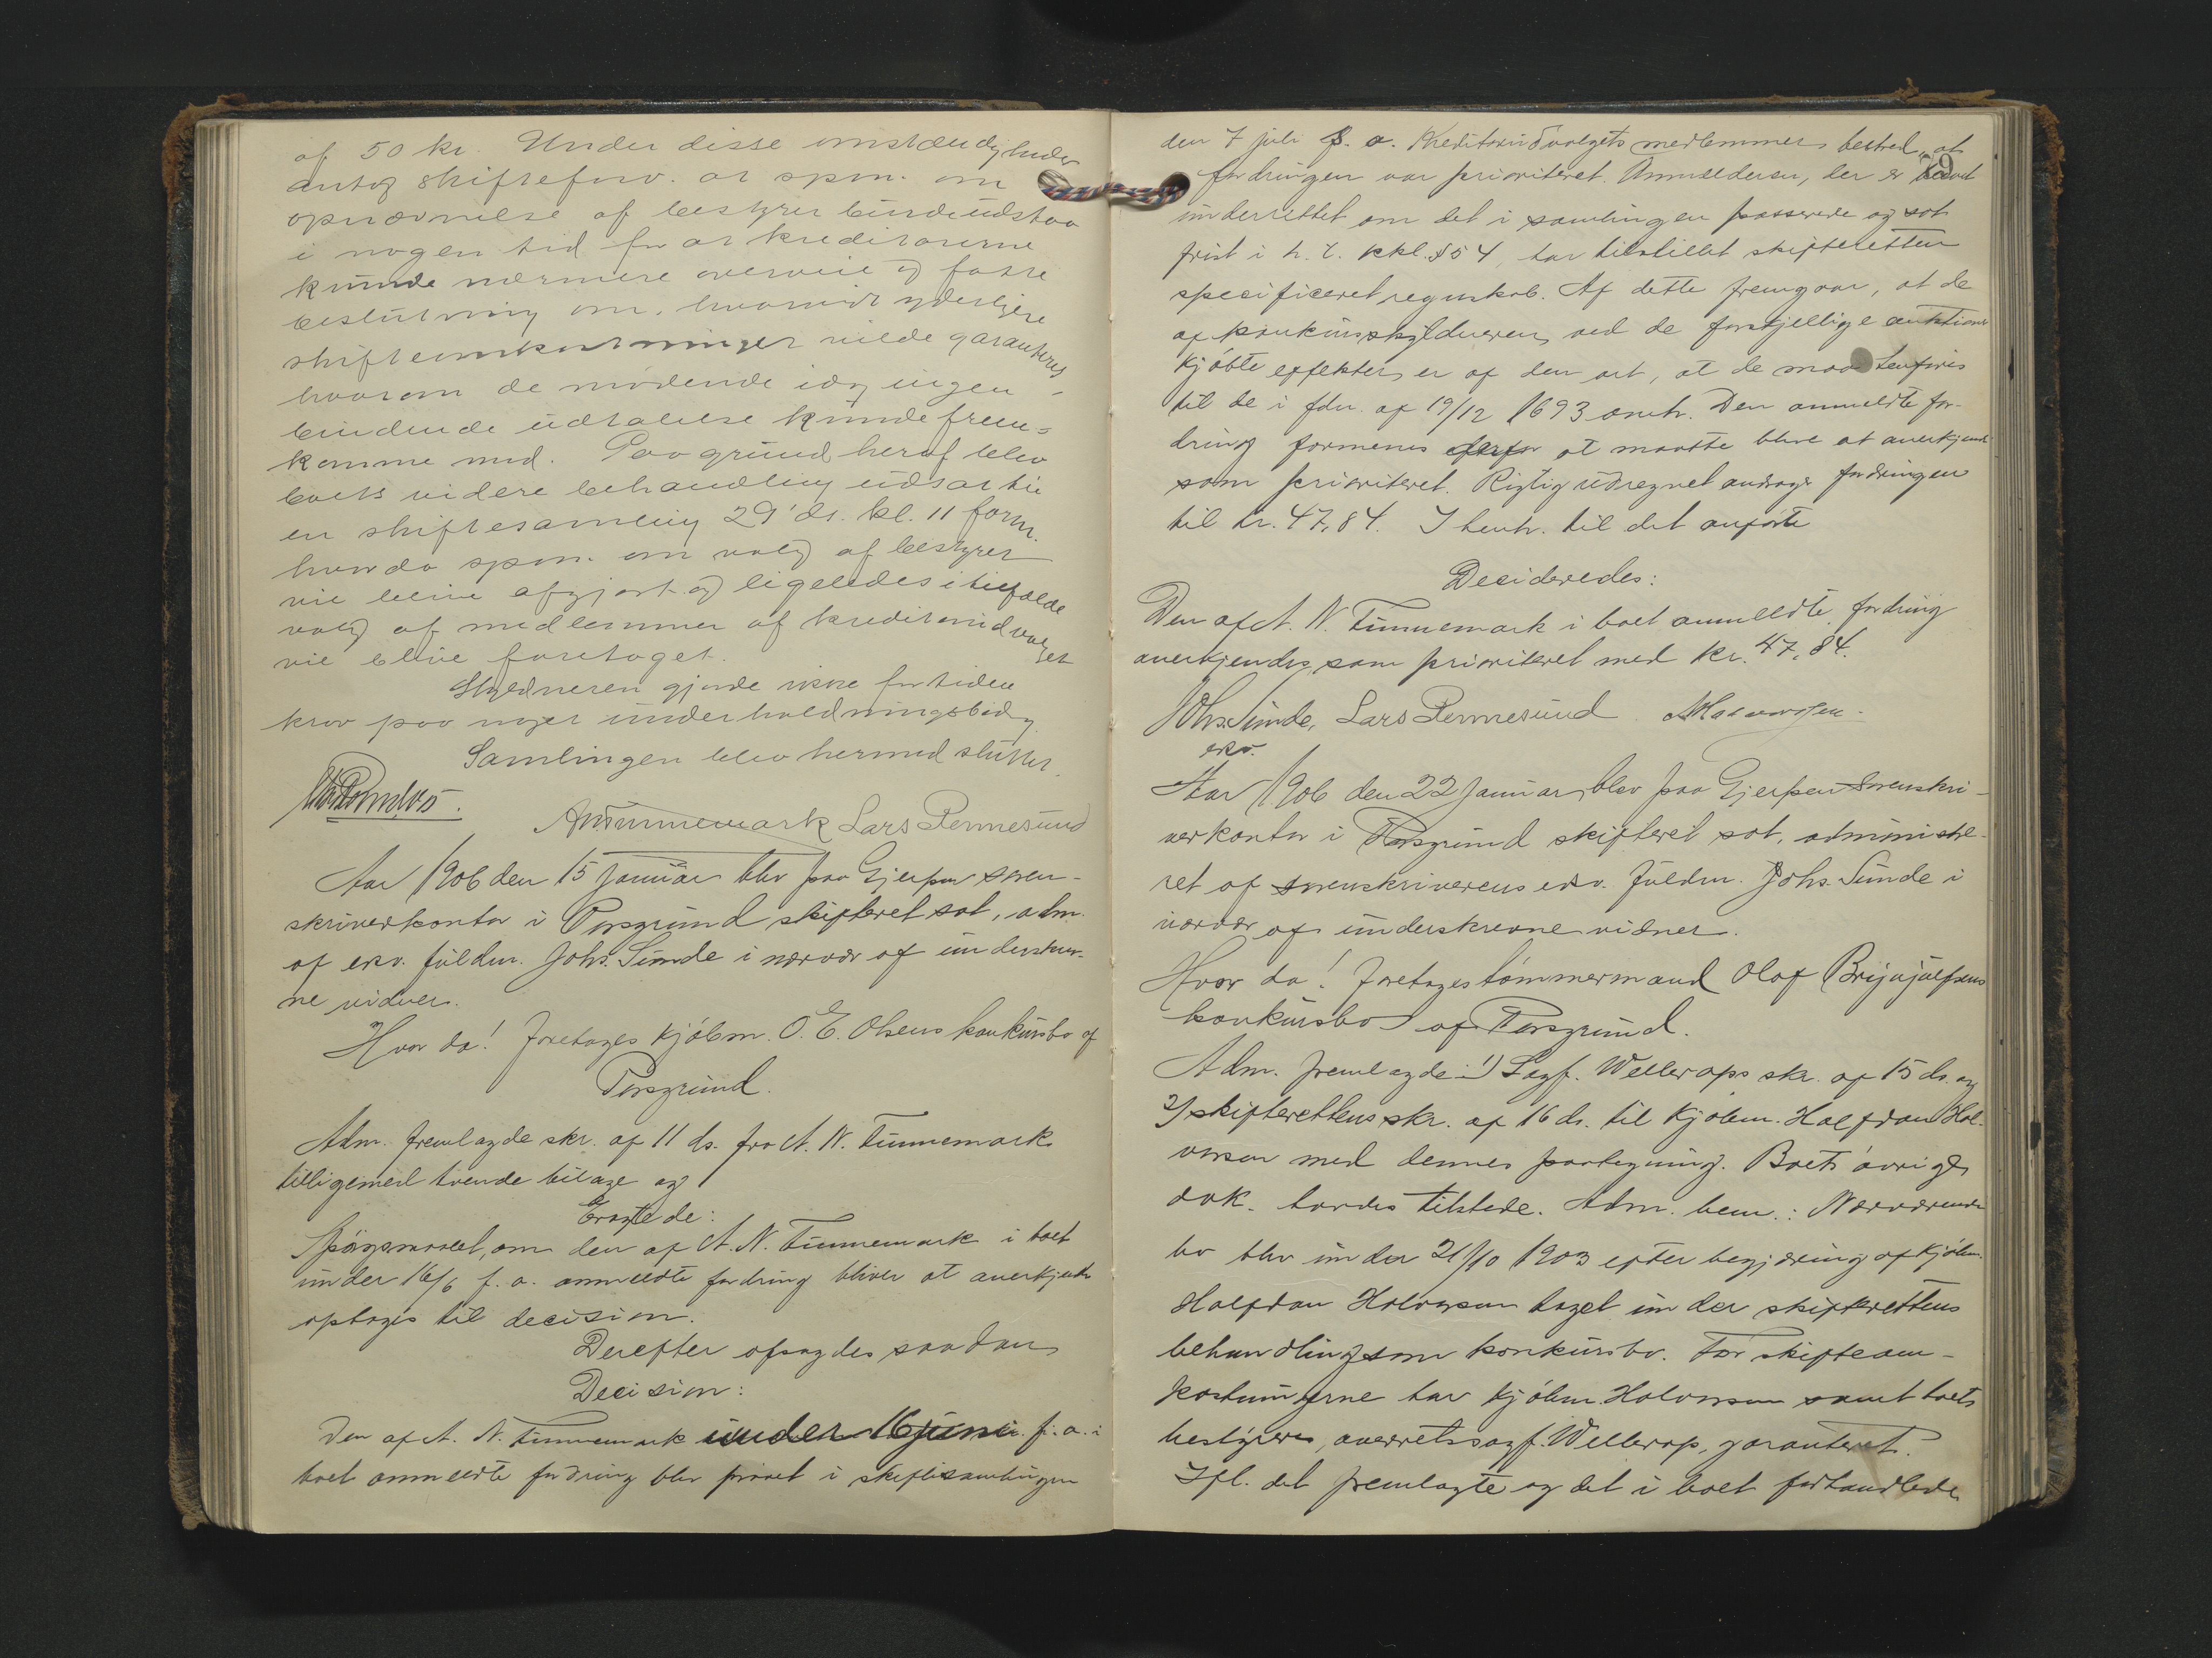 af 50 kr. Under disse omstændigheder
antog skifteforv. at spm. om
opnævnelse af bestyrer burde udstaa
i nogen tid for at kreditorerne
kunde nærmere overveie og fatte
beslutning om, hvorvidt yderligere
skifteomkostninger vilde garanteres
hvorom de mødende idag ingen
bindende udtalelse kunde frem=
komme med. Paa grund heraf blev
boets videre behandling udsat til
en skiftesamling 29' ds. kl. 11 form.
hvor da spm. om valg af bestyrer
vil blive afgjort og ligeledes i tilfælde
valg af medlemmer af kreditorudvalget
vil blive foretaget.
Skyldneren gjorde ikke for tiden
krav paa noget underholdningsbidrag.
Samlingen blev hermed sluttet.
A N Tinnemark Lars Permesund
Aar 1906 den 15 januar blev paa Gjerpen soren-
skriverkontor i Porsgrund skifteret sat, adm.
af ekv. fuldm. Johs. Sunde i nærvær af underskrev-
ne vidner.
Hvor da! Foretages kjøbm. O. E. Olsens konkursbo af
Porsgrund.
Adm. fremlagde skr. af 11 ds. fra A. N. Tinnemark
tilligemed tvende bilage og
Eragtede:
Spørgsmaalet, om den af A. N. Tinnemark i boet
under 16/6 f. a. anmeldte fordring bliver at anerkjende
optages til decision.
Derefter afsagdes saadan
Decision:
Den af A. N. Tinnemark under 16 juni f. a. i
boet anmeldte fordring blev prøvet i skiftesamlingen
79
den 7 juli f. a. Kreditorudvalgets medlemmer bestred, at
fordringen var prioriteret. Anmelderen, der er
underrettet om det i samlingen passerede og sat
frist i h. t. kkl. § 54, har tilstillet skifteretten
specificeret regnskab. Af dette fremgaar, at de
af konkursskyldneren ved de forskjellige auktioner
kjøbte effekter er af den art, at de maa henføres
til de i fdn. af 19/12 1693 omh. Den anmeldte for-
dring formenes derfor at maatte blive at anerkjende
som prioriteret. Rigtig udregnet andrager fordringen
til kr. 47,84. I henh. til det anførte
Decideredes:
Den af A. N. Tinnemark i boet anmeldte fordring
anerkjendes som prioriteret med kr. 47,84.
Johs. Sunde, Lars Permesund
ekv.
Aar 1906 den 22 januar blev paa Gjerpen sorenskri-
verkontor i Porsgrund skifteret sat, administre-
ret af sorenskriverens ekv. fuldm. Johs. Sunde i
nærvær af underskrevne vidner.
Hvor da! Foretages tømmermand Olaf Brynjulfsens
konkursbo af Porsgrund.
Adm. fremlagde: 1) Sagf. Wellerops skr. af 15 ds. og
2) skifterettens skr. af 16 ds. til kjøbm. Halfdan Hal-
vorsen med dennes paategning. Boets øvrige
dok. havdes tilstede. Adm. bem.: Nærværende
bo blev under 21/10 1903 efter begjæring af kjøbm.
Halfdan Halvorsen taget under skifterettens
behandling som konkursbo. For skifteom-
kostningerne har kjøbm. Halvorsen samt boets
bestyrer, overretssagf. Wellerop, garanteret.
Ifl. det fremlagte og det i boet forhandlede